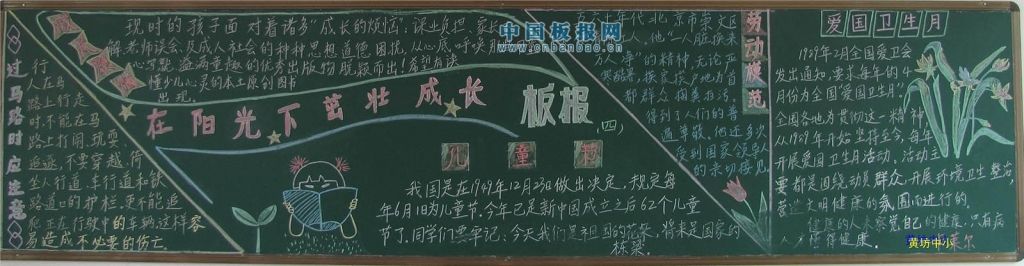 中国板报网
www.cnbanbao.cn
现时的孩子面对着诸多"成长的烦恼"：课业负担、家长
解老师误会、及成人社会的种种思想道德困扰，从心底呼唤
心可能溢满童趣的优秀出版物脱颖而出！希望有读
懂少儿心灵的本土原创图书
出现。
过马路时应注意
行人在马
路上行走
时不能在马
路上打闹、现耍、
追逐，不要穿越、倚
坐人行道、车行道和铁
路道口的护栏，更不能追
爬正在行驶中的车辆，这样容
易造成不必要的伤亡。
在阳光下茁壮成长
板报
(四)
儿童节
我国是在1949年12月23日做出决定，规定每
年6月1日为儿童节。今年已是新中国成立之后62个儿童
节了。同学们要牢记、今天我们是祖国的花朵、将来是国家的
栋梁。
劳动模范
年代北京市崇文区
人。他"一人脏换来
万人净"的精神，无论严
寒酷暑，挨家挨户地为首
都群众掏粪扫污，
得到了人们的普
遍尊敬。他还多次
受到国家领导人
的亲切接见
爱国卫生月
1989年2月全国爱卫会
发出通知，要求每年的4
月份为全国"爱国卫生月"。
全国各地为贯彻这一精神
从1989年开始坚持至今，每年
开展爱国卫生月活动，活动主
要都是围绕动员群众，开展环境卫生整治，
营造文明健康的氛围而进行的。
健康的人未察觉自己的健康，只有病
人才懂得健康。
莱尔
黄坊中小